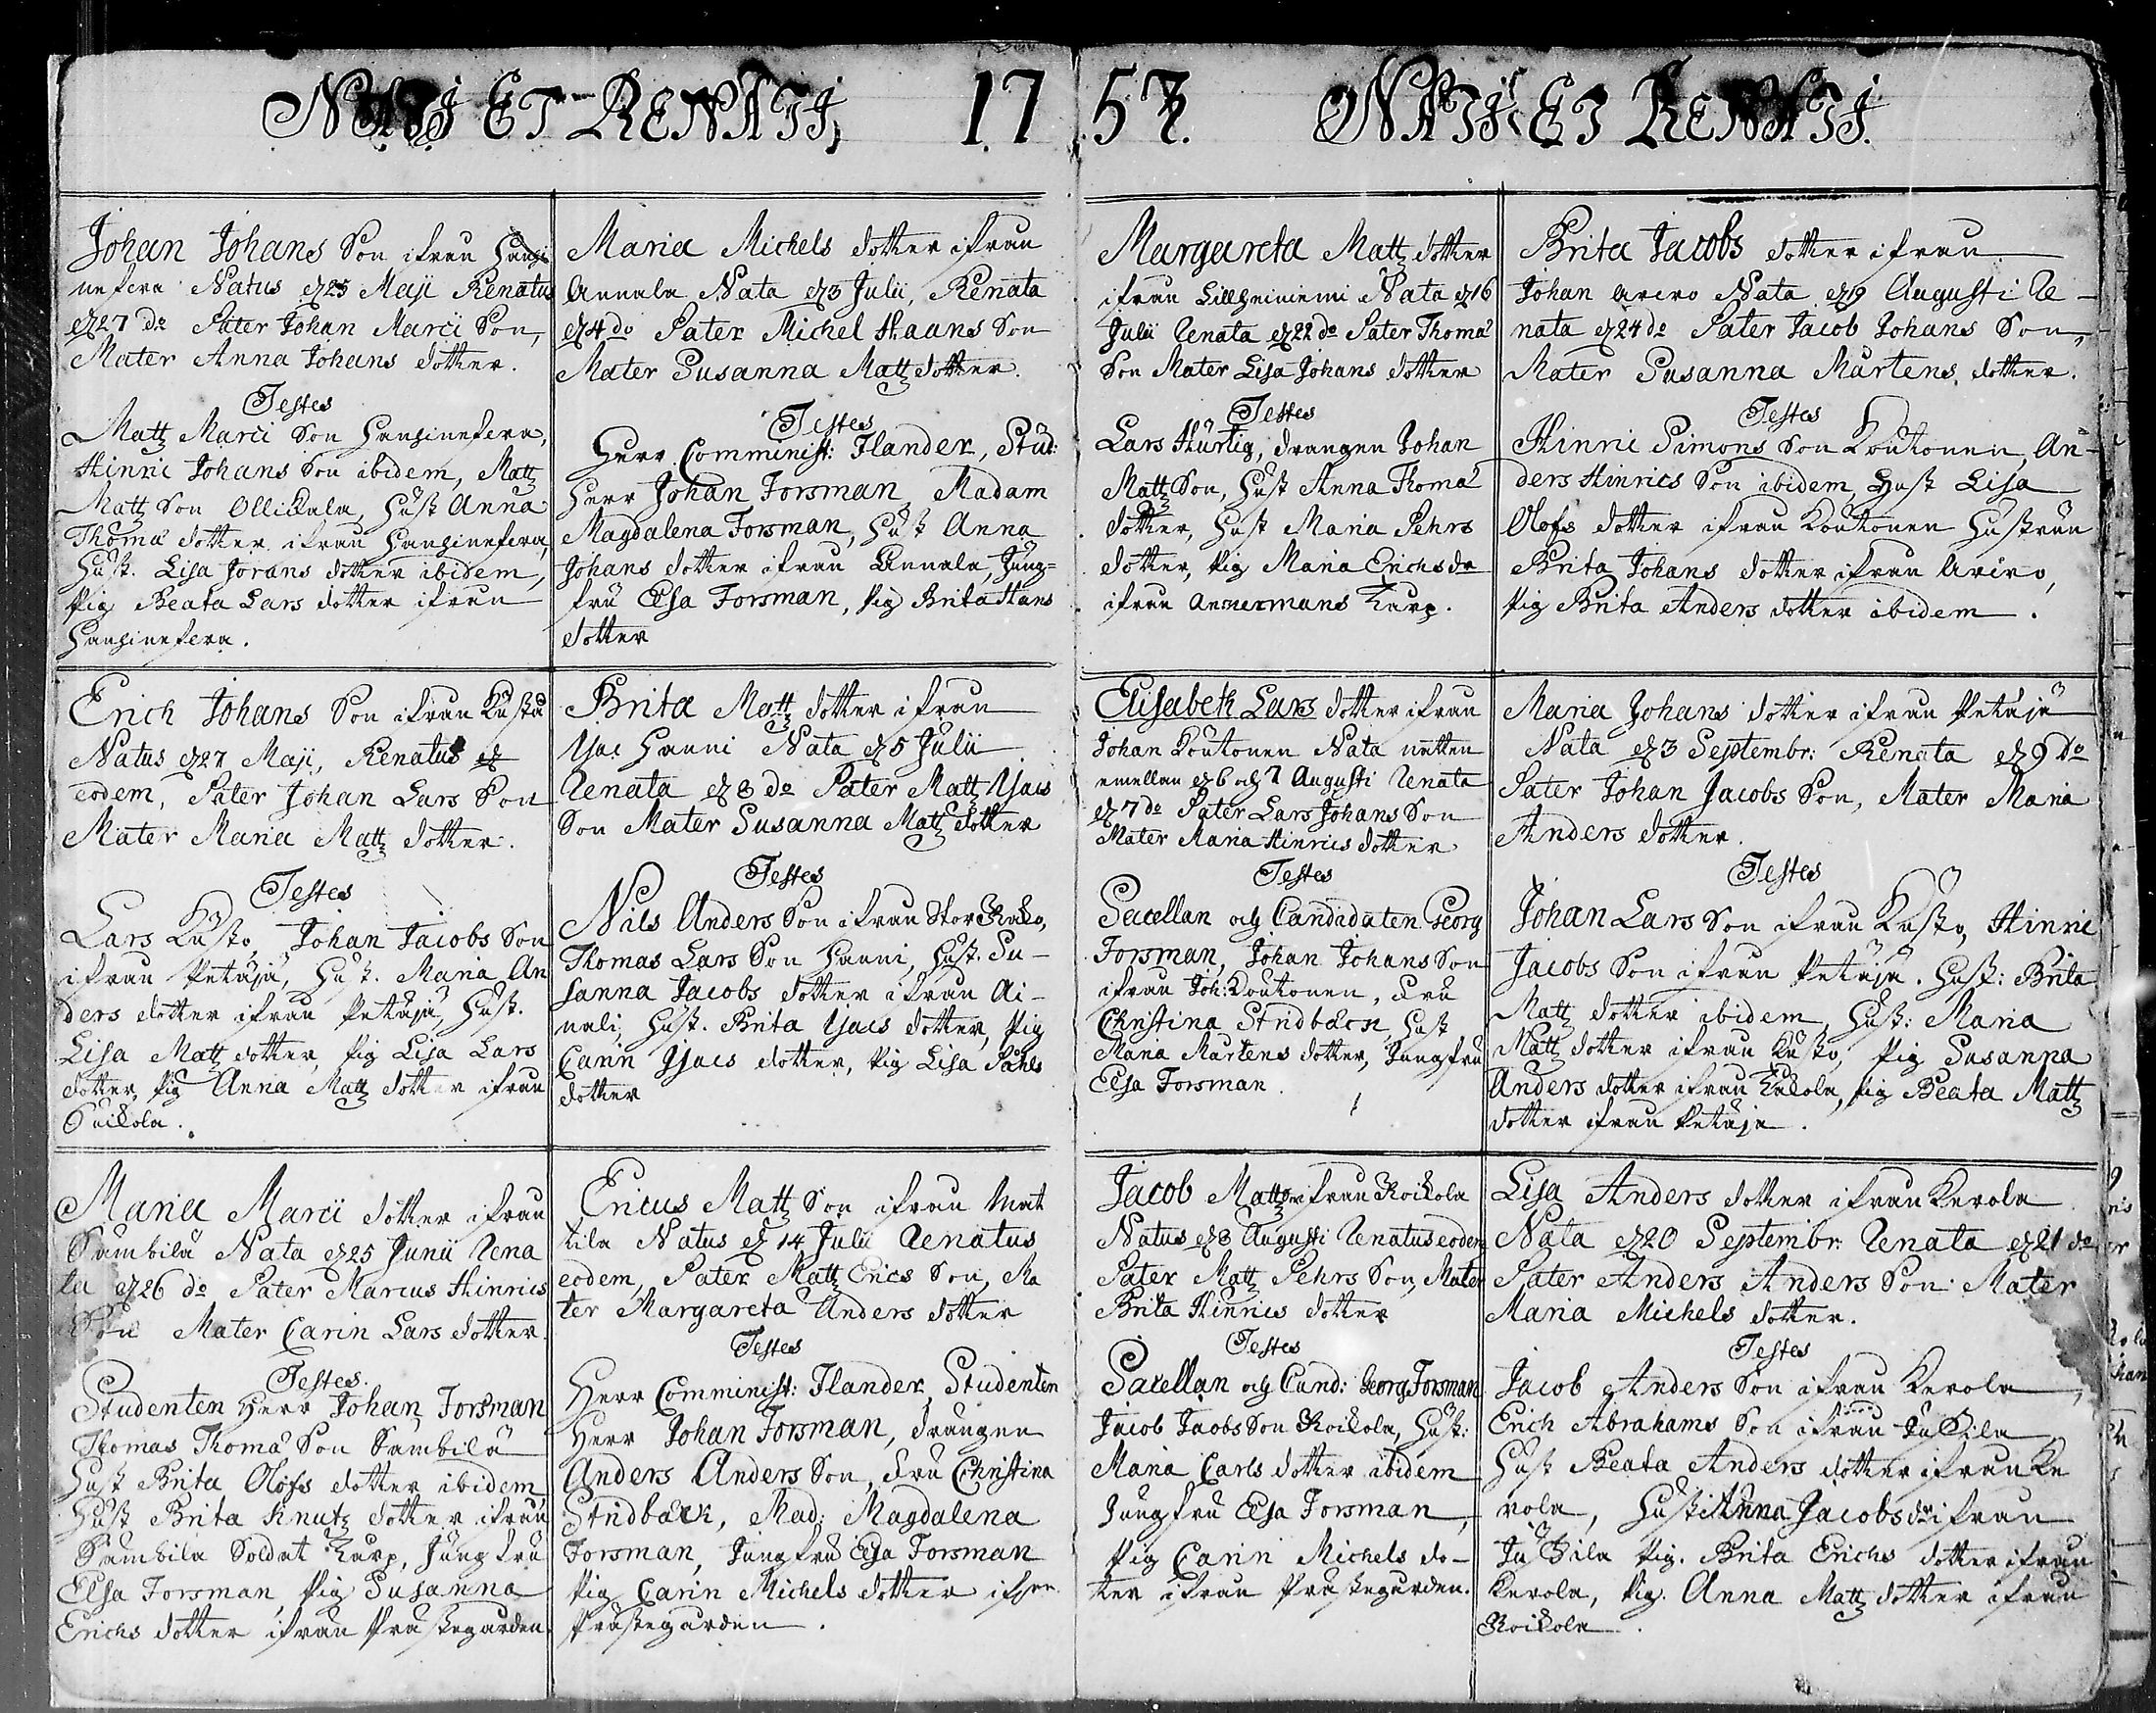 NATI ET RENATI, 17
Johan Johans Son ifrån Hangi
nefera Natus d 25 Maji Renatus
d 27 do Pater Johan Marci Son,
Mater Anna Johans dotter.
Testes
Matz Marci Son Hanginefera,
Hinric Johans Son ibidem, Matz
Matz Son Ollickala, Hust Anna
Thomæ dotter ifrån Hanginefera,
Hust. Lisa Jorans dotter ibidem,
Pig Beata Lars dotter ifrån
Hanginefera.
Erich Johans Son ifrån Kusto
Natus d 27 Maji, Renatus d
eodem, Pater Johan Lars Son
Mater Maria Matz dotter.
Testes
Lars Kusto, Johan Jacobs Son
ifrån Petäjä, Hust. Maria An
ders dotter ifrån Petäjä, Hust.
Lisa Matz dotter, Pig Lisa Lars
dotter, Pig Anna Matz dotter ifrån
Suikola.
Maria Marci dotter ifrån
Sambila Nata d 25 Junii Rena
ta d 26 do Pater Marcus Hinrics
Son Mater Carin Lars dotter.
Testes.
Studenten Herr Johan Forsman
Thomas Thomæ Son Sambila
Hust Brita Olofs dotter ibidem
Hust Brita Knutz dotter ifrån
Sambila Soldat Karp, Jungfru
Elsa Forsman, Pig Susanna
Erichs dotter ifrån Prästegården.
Maria Michels dotter ifrån
Annala Nata d 3 Julii, Renata
d 4 do Pater Michel Haans Son
Mater Susanna Matz dotter.
Testes
Herr Comminist: Ilander, Stud:
Herr Johan Forsman, Madam
Magdalena Forsman, Hust Anna
Johans dotter ifrån Annala, Jung=
fru Elsa Forsman, Pig Brita Hans
dotter
Brita Matz dotter ifrån
Yjac Hanni Nata d 5 Julii
Renata d 8 do Pater Matz Yjacs
Son Mater Susanna Matz dotter
Testes
Nils Anders Son ifrån Stor Roko,
Thomas Lars Son Hanni, Hust. Su-
sanna Jacobs dotter ifrån Ai-
nali, Hust. Brita Yjacs dotter, Pig
Carin Yjacs dotter, Pig Lisa Påhls
dotter
Ericus Matz Son ifrån Mat
tila Natus d 14 Julii Renatus
eodem, Pater Matz Erics Son, Ma
ter Margareta Anders dotter
Testes
Herr Comminist: Ilander, Studenten
Herr Johan Forsman, drängen
Anders Anders Son, Fru Christina
Stridbäck, Mad: Magdalena
Forsman, Jungfru Elsa Forsman
Pig Carin Michels dotter ifrån
Prästegården.
57. NATI ET RENATI.
Margareta Matz dotter
ifrån Lillheiniemi Nata d 16
Julii Renata d 22 do Pater Thomæ
Son Mater Lisa Johans dotter
Testes
Lars Hurtig, drängen Johan
Matz Son, Hust Anna Thomæ
dotter, Hust Maria Pehrs
dotter, Pig Maria Erichs dr
ifrån Ankermans Karp.
Elisabeth Lars dotter ifrån
Johan Koutonen Nata natten
emellan d 6 och 7 Augusti Renata
d 7 do Pater Lars Johans Son
Mater Maria Hinrics dotter
Testes
Sacellan och Candidaten Georg
Forsman, Johan Johans Son
ifrån Joh: Koutonen, Fru
Christina Stridbäck, Hust
Maria Martens dotter, Jungfru
Elsa Forsman.
Jacob Matz Son ifrån Roikola
Natus d 8 Augusti Renatus eodem
Pater Matz Pehrs Son, Mater
Brita Hinrics dotter
Testes
Sacellan och Cand: Georg Forsman
Jacob Jacobs Son Roikola, Hust:
Maria Carls dotter ibidem
Jungfru Elsa Forsman,
Pig Carin Michels do-
ter ifrån Prästegården.
Brita Jacobs dotter ifrån
Johan Arvo Nata d 19 Augusti Re-
nata d 24 do Pater Jacob Johans Son,
Mater Susanna Martens dotter.
Testes
Hinric Simons Son Koutonen, An-
ders Hinrics Son ibidem, Hust Lisa
Olofs dotter ifrån Koutonen Hustrun
Brita Johans dotter ifrån Arvo,
Pig Brita Anders dotter ibidem.
Maria Johans dotter ifrån Petäjä
Nata d 3 Septembr: Renata d 9 do
Pater Johan Jacobs Son, Mater Maria
Anders dotter.
Testes
Johan Lars Son ifrån Kusto, Hinric
Jacobs Son ifrån Petäjä. Hust: Brita
Matz dotter ibidem, Hust: Maria
Matz dotter ifrån Kusto, Pig Susanna
Anders dotter ifrån Kakola, Pig Beata Matz
dotter ifrån Petäjä.
Lisa Anders dotter ifrån Kerola
Nata d 20 Septembr: Renata d 21 do
Pater Anders Anders Son: Mater
Maria Michels dotter.
Testes
Jacob Anders Son ifrån Kerola,
Erich Abrahams Son ifrån
Hust Beata Anders dotter ifrån Ke
rola, Hust: Anna Jacobs dr ifrån
Pig. Brita Erichs dotter ifrån
Kerola, Pig. Anna Matz dotter ifrån
Roikola.